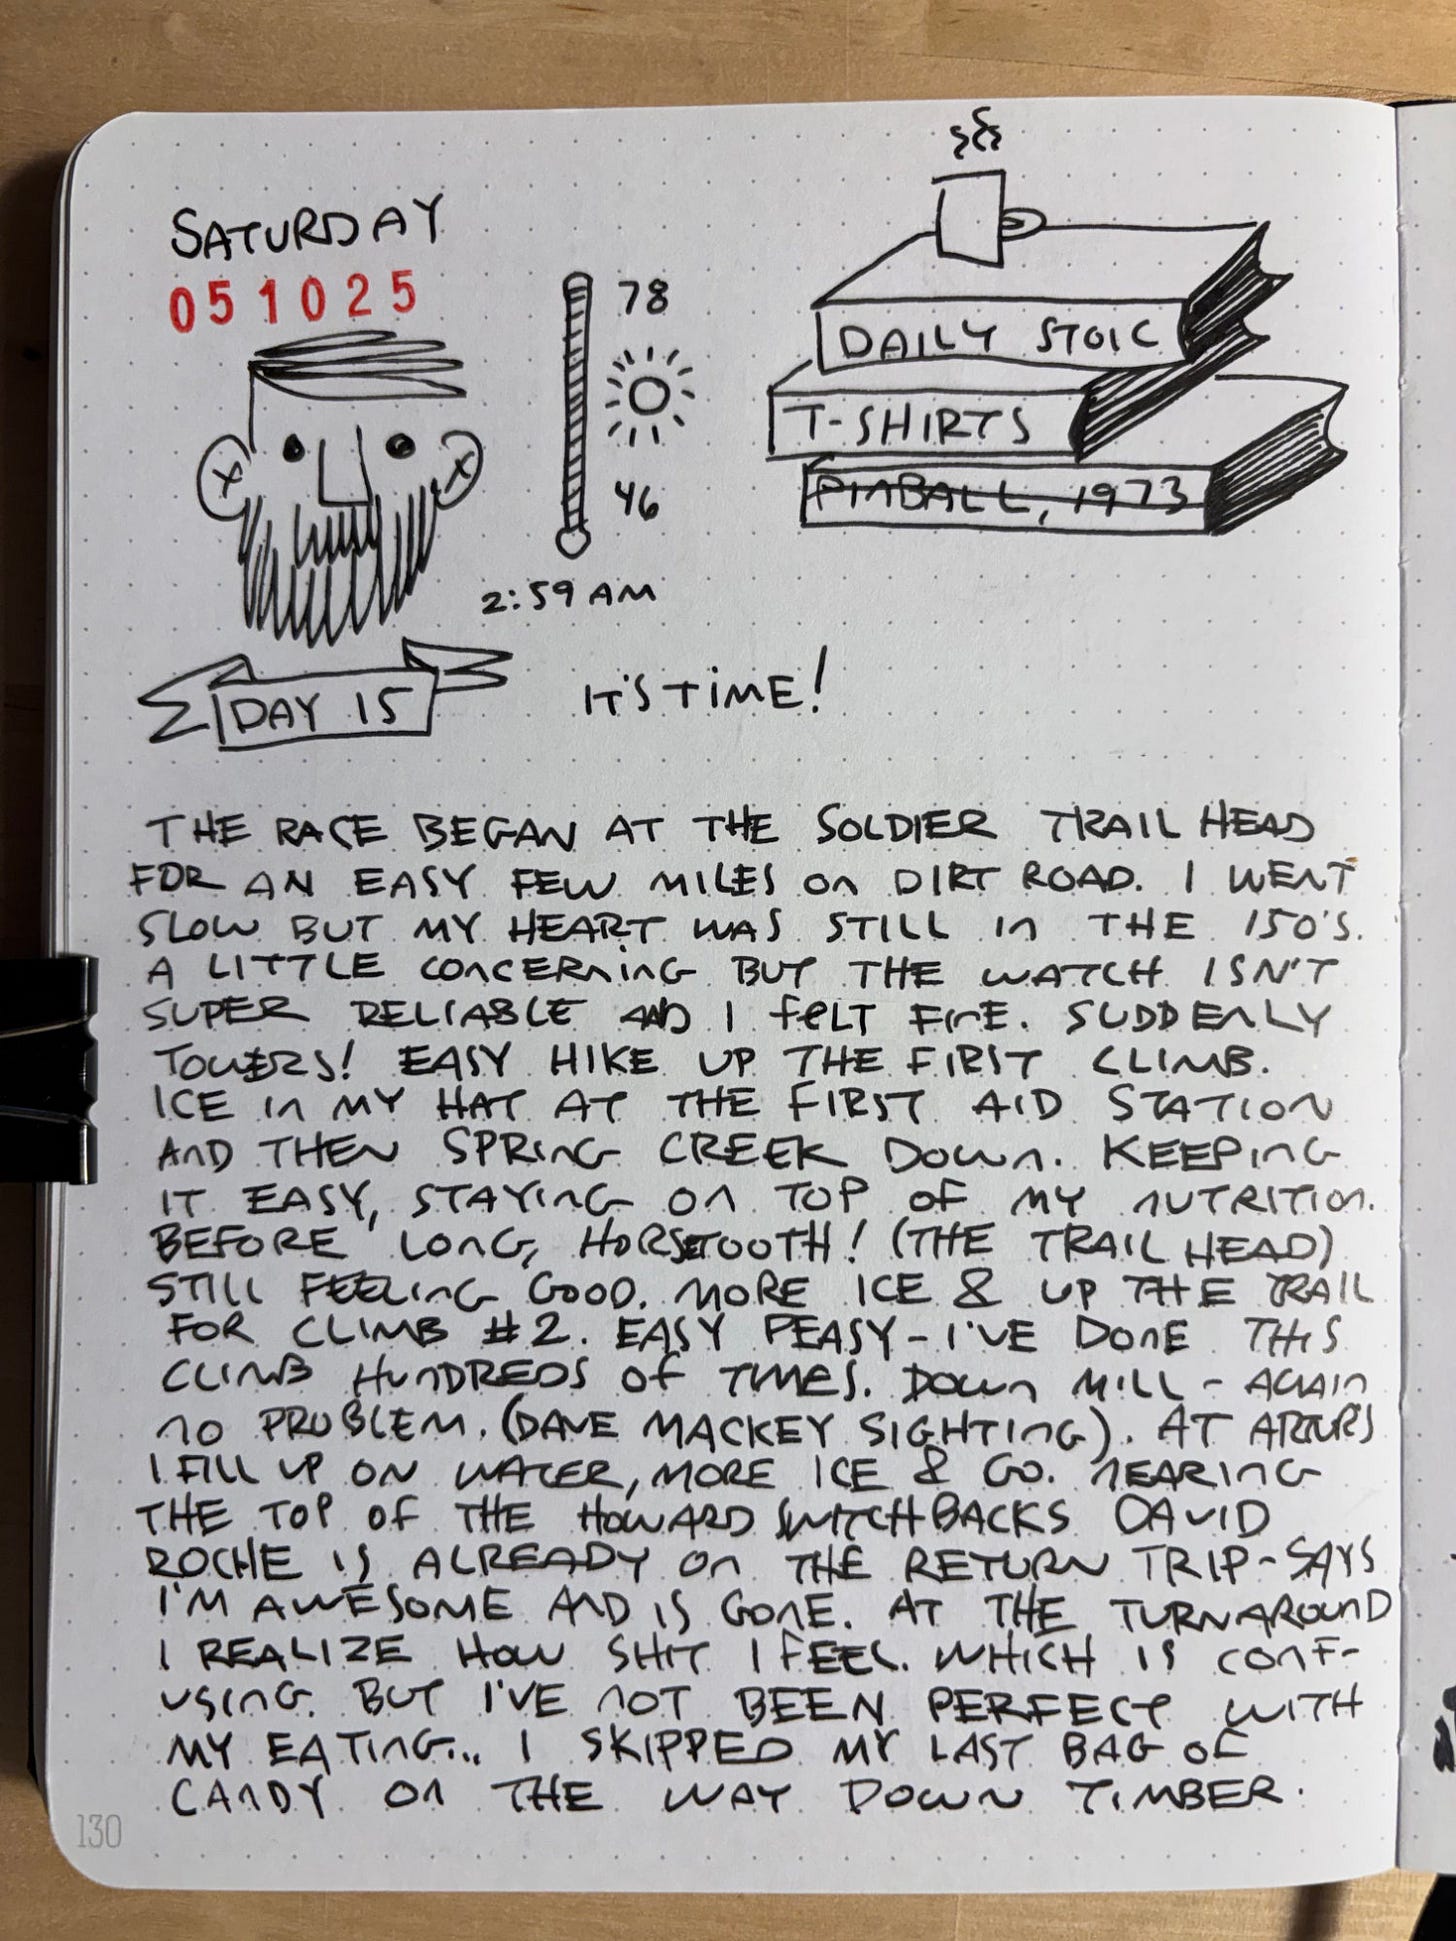 SATURDAY
051025
78
46
2:59 AM
DAILY STOIC
T-SHIRTS
PINBALL, 1973
DAY 15
IT'S TIME!
THE RACE BEGAN AT THE SOLDIER TRAIL HEAD
FOR AN EASY FEW MILES ON DIRT ROAD. I WENT
SLOW BUT MY HEART WAS STILL IN THE 150'S.
A LITTLE CONCERNING BUT THE WATCH ISN'T
SUPER RELIABLE AND I FELT FINE. SUDDENLY
TOWERS! EASY HIKE UP THE FIRST CLIMB.
ICE IN MY HAT AT THE FIRST AID STATION
AND THEN SPRING CREEK DOWN. KEEPING
IT EASY, STAYING ON TOP OF MY NUTRITION.
BEFORE LONG, HORSETOOTH! (THE TRAIL HEAD)
STILL FEELING GOOD. MORE ICE & UP THE TRAIL
FOR CLIMB #2. EASY PEASY - I'VE DONE THIS
CLIMB HUNDREDS OF TIMES. DOWN MILL - AGAIN
NO PROBLEM. (DAVE MACKEY SIGHTING). AT ARTUR'S
I FILL UP ON WATER, MORE ICE & GO. NEARING
THE TOP OF THE HOWARD SWITCHBACKS DAVID
ROCHE IS ALREADY ON THE RETURN TRIP - SAYS
I'M AWESOME AND IS GONE. AT THE TURNAROUND
I REALIZE HOW SHIT I FEEL. WHICH IS CONF-
USING. BUT I'VE NOT BEEN PERFECT WITH
MY EATING... I SKIPPED MY LAST BAG OF
CANDY ON THE WAY DOWN TIMBER.
130